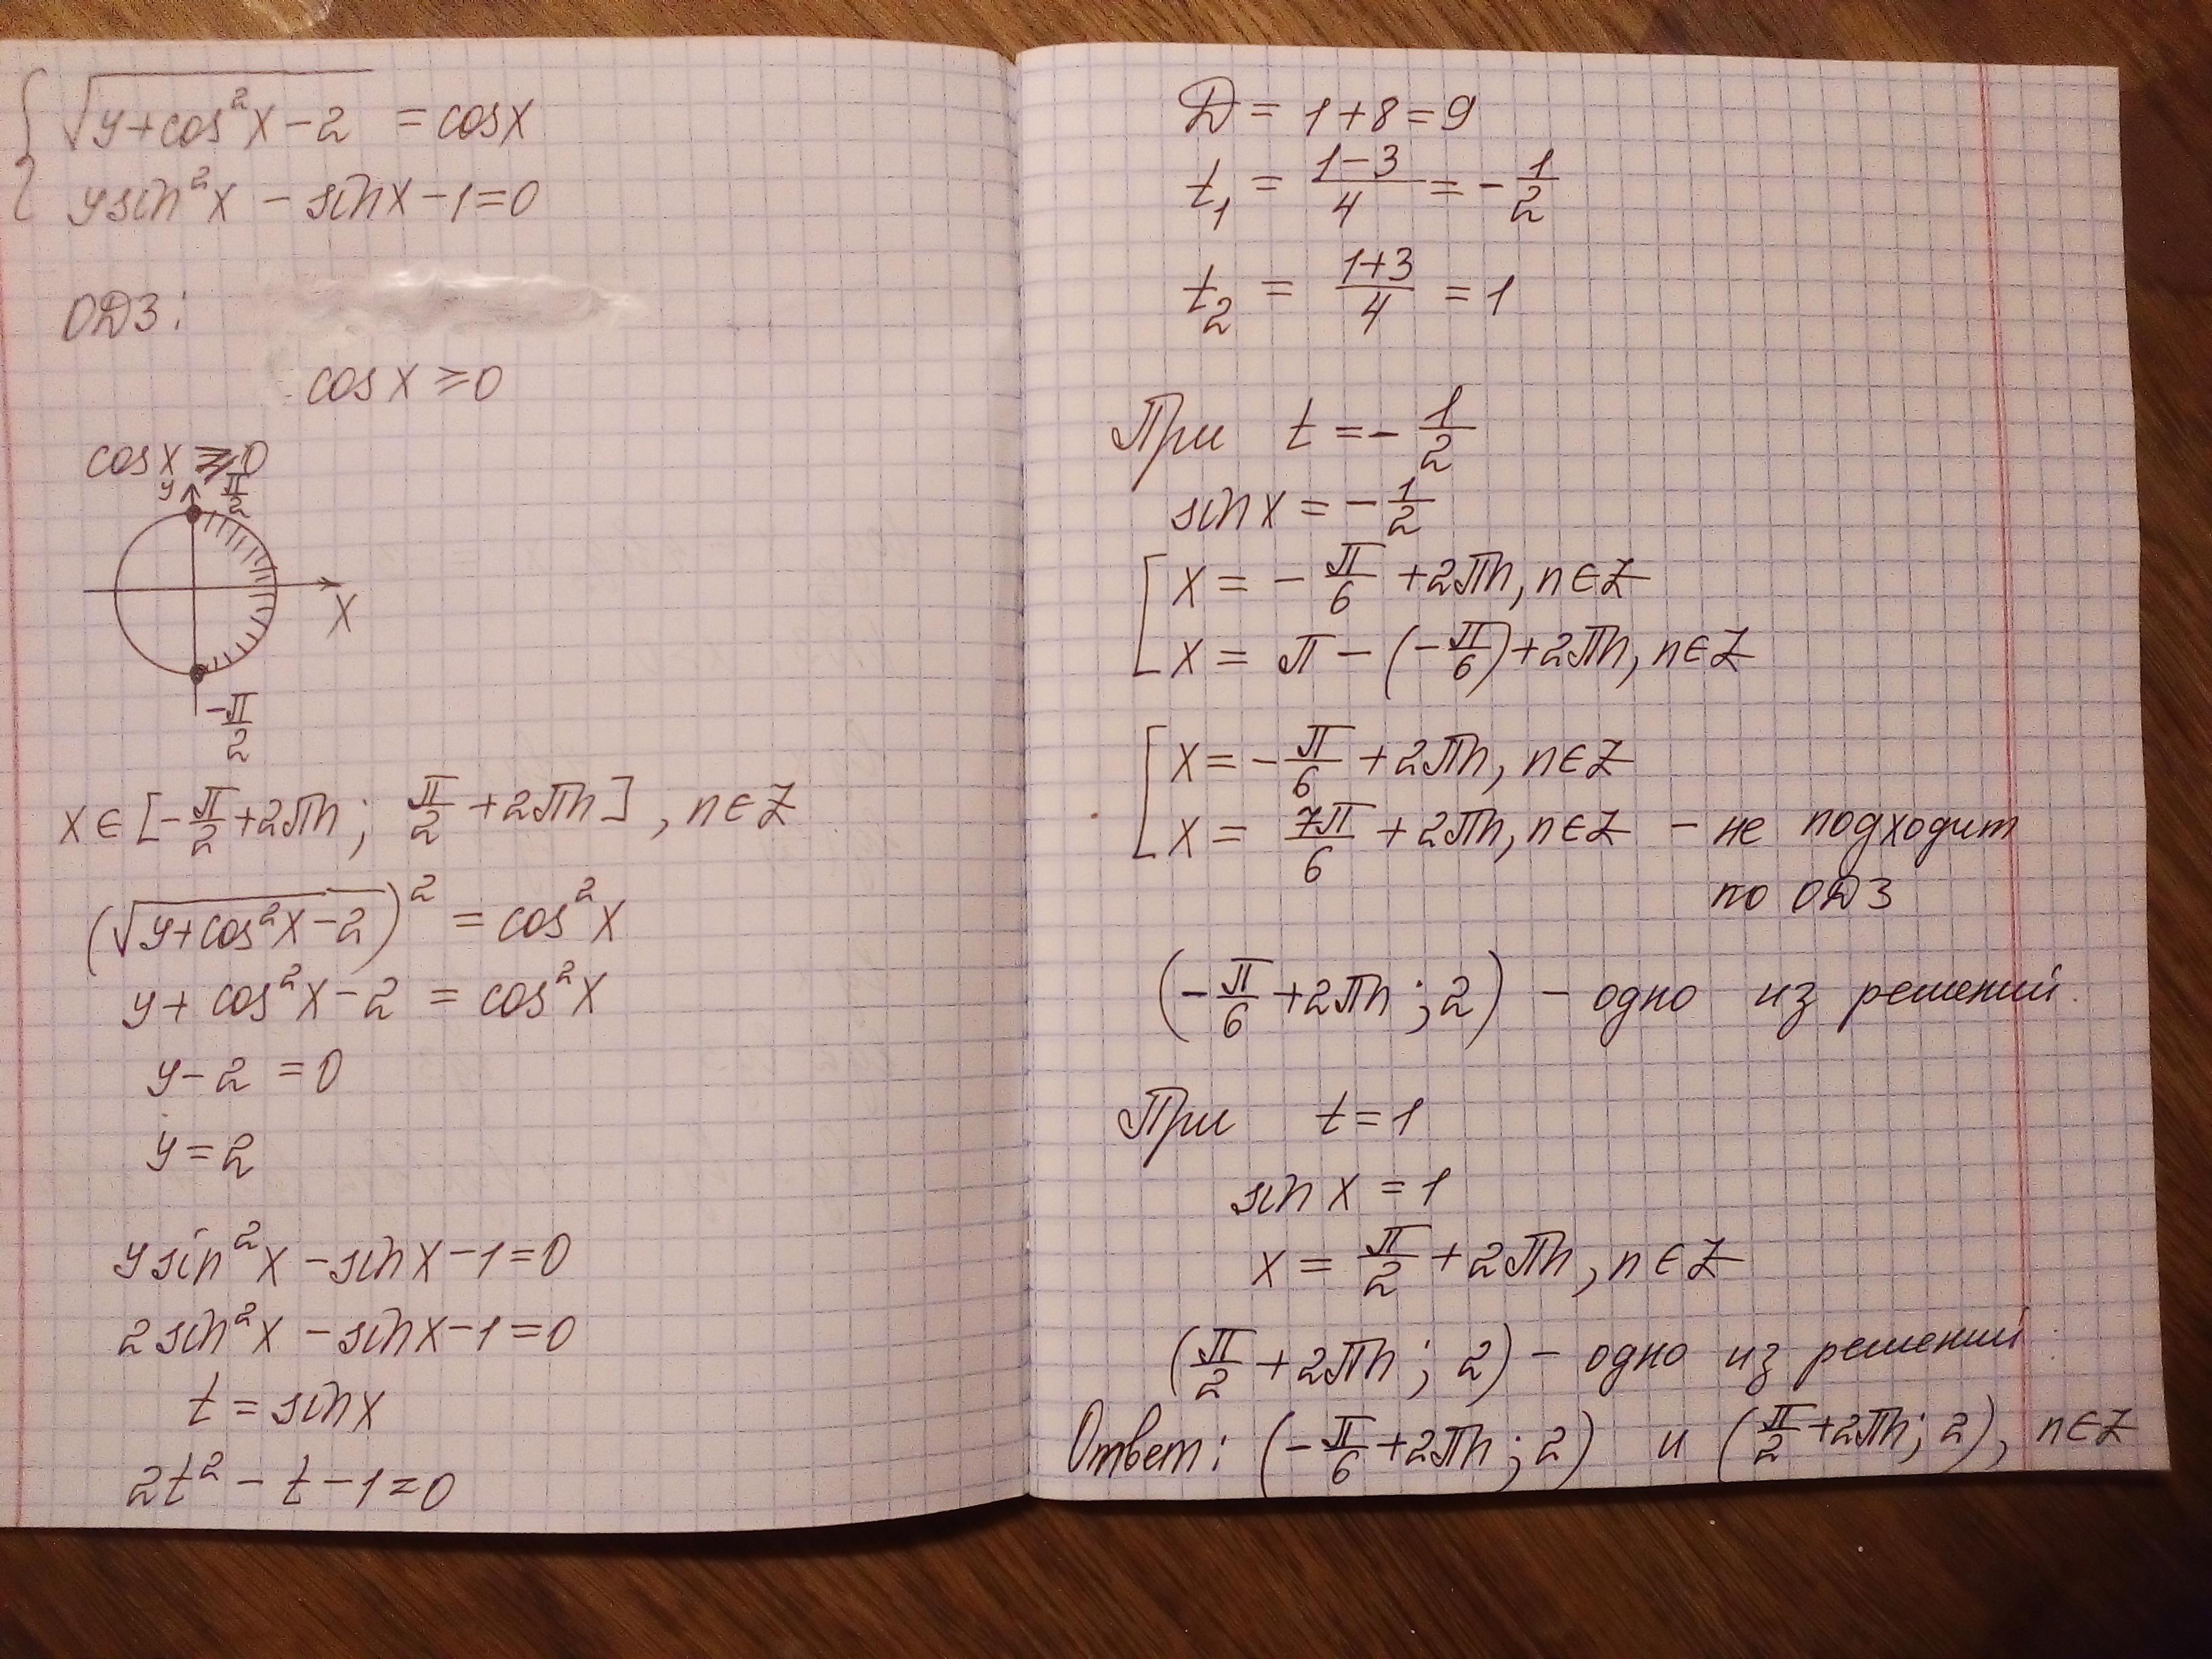 { √(y+cos²x-2) = cosx
ysin²x - sinx-1=0
ОДЗ:
cosx ≥0
cosx ≥0
y
π/2
x
-π/2
x∈[-π/2+2πn; π/2+2πn], n∈Z
(√(y+cos²x-2))² = cos²x
y+cos²x-2 = cos²x
y-2 =0
y=2
ysin²x-sinx-1=0
2sin²x-sinx-1=0
t=sinx
2t²-t-1=0
Д= 1+8=9
t₁ = (1-3)/4 = -1/2
t₂ = (1+3)/4 =1
При t=-1/2
sinx=-1/2
[ x= -π/6 +2πn, n∈Z
x= π-(-π/6)+2πn, n∈Z
[ x=-π/6 +2πn, n∈Z
x= 7π/6 +2πn, n∈Z - не подходит
по ОДЗ
(-π/6+2πn; 2) - одно из решений.
При t=1
sinx=1
x=π/2+2πn, n∈Z
(π/2+2πn; 2)- одно из решений.
Ответ: (-π/6+2πn; 2) и (π/2+2πn; 2), n∈Z